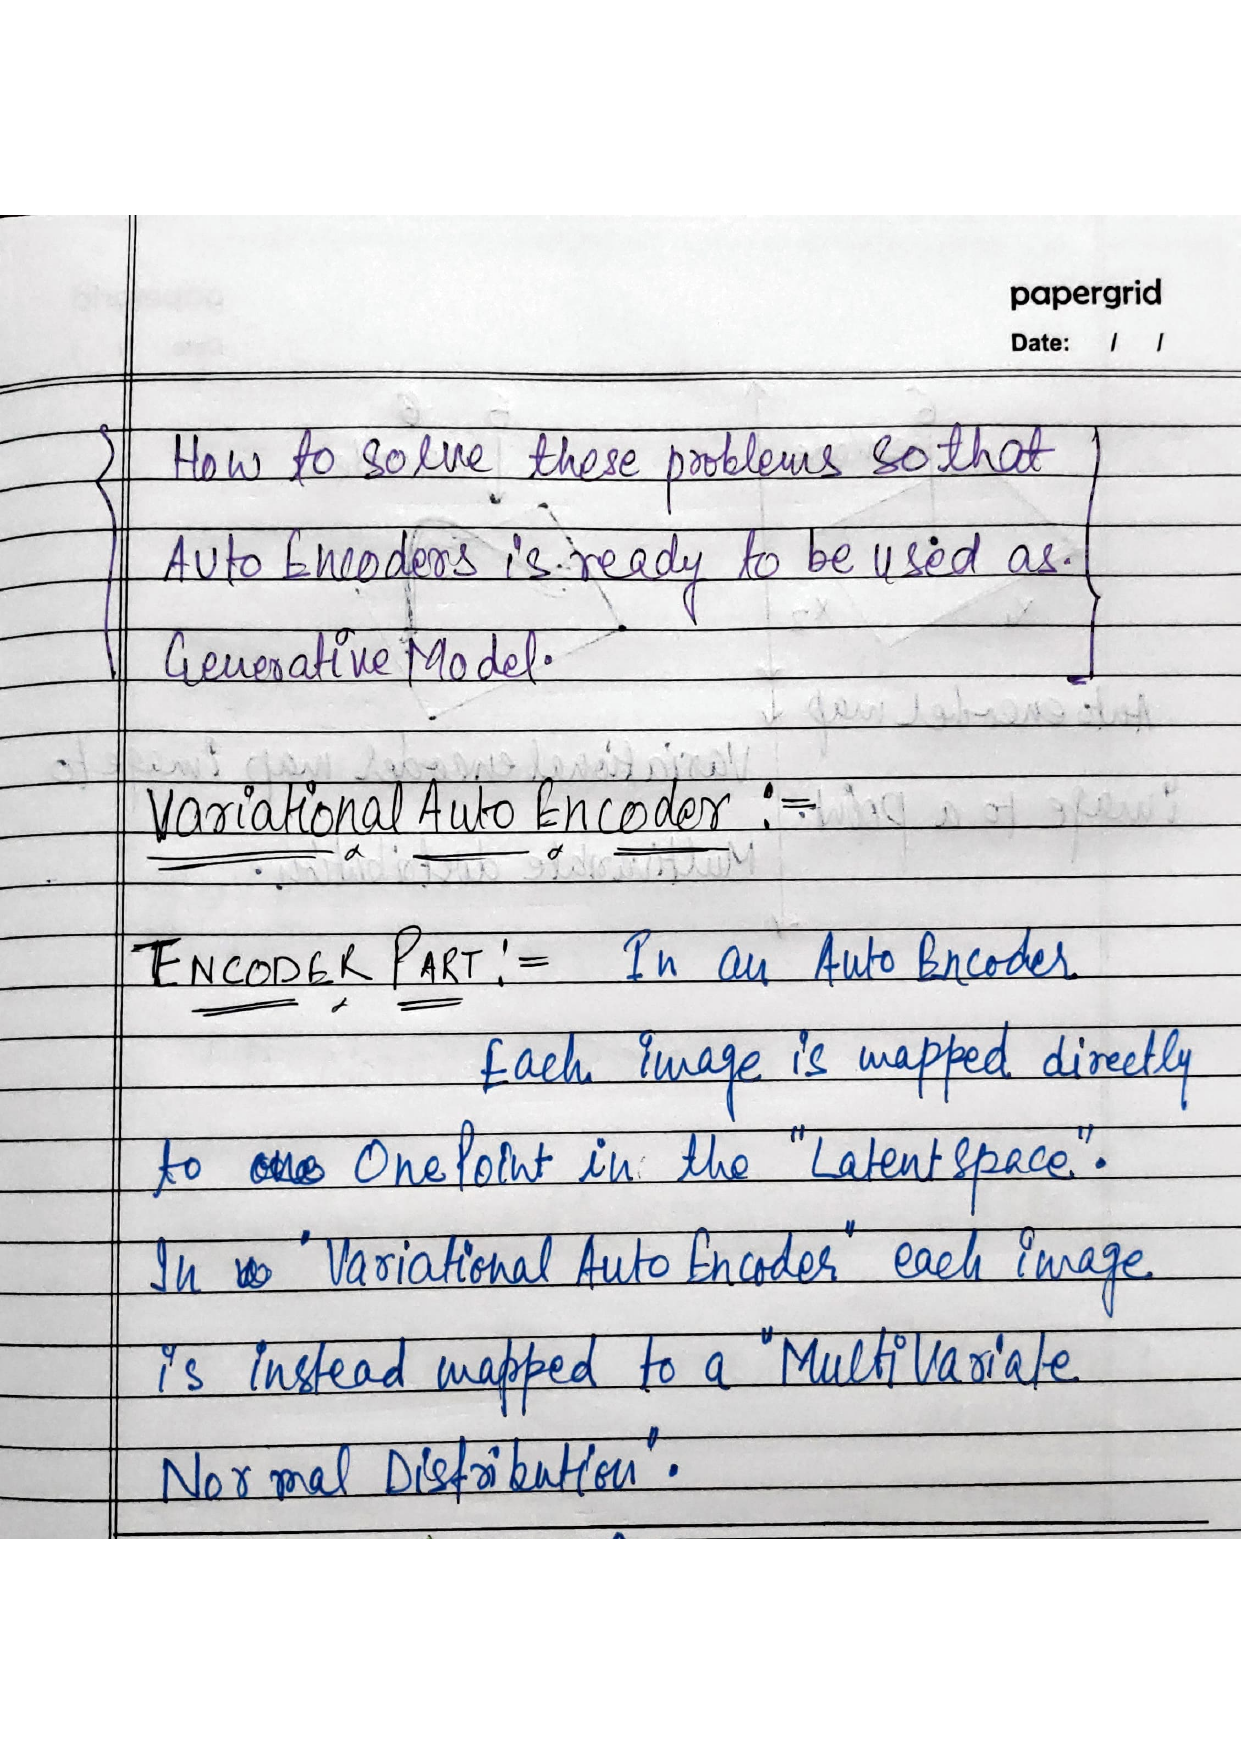 papergrid
Date: / /
How to solve these problems so that
Auto Encoders is ready to be used as.
Generative Model.
Variational Auto Encoder :=
ENCODER PART := In an Auto Encoder
Each image is mapped directly
to One Point in the "Latent Space".
In "Variational Auto Encoder" each image
is instead mapped to a "MultiVariate
Normal Distribution".